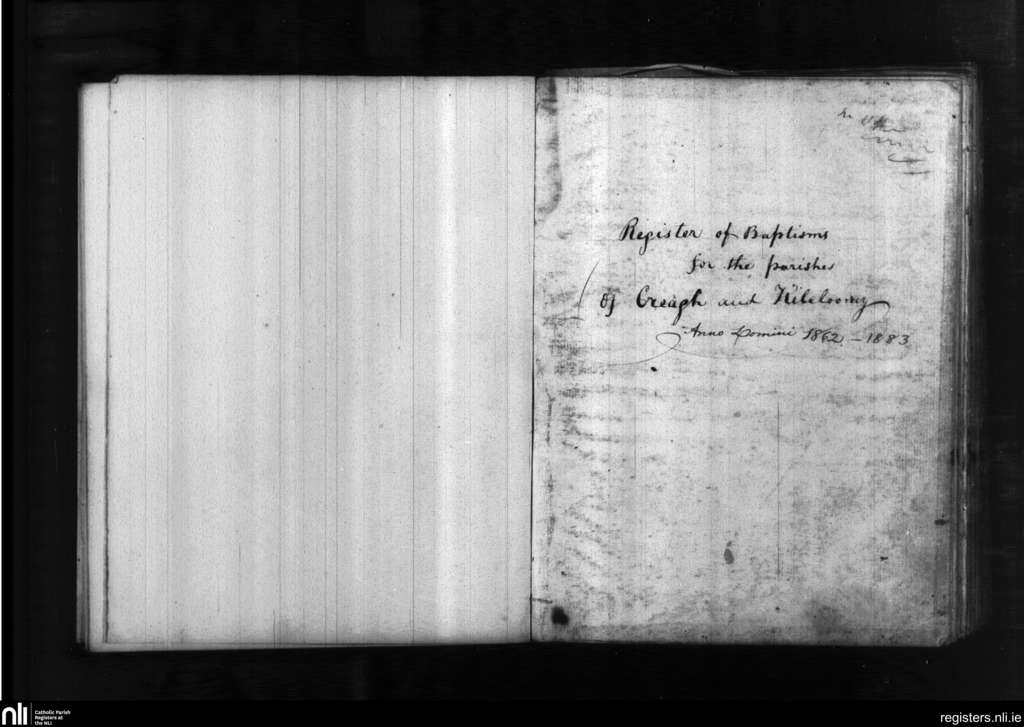 Register of Baptisms
for the parishes
of Creagh and Kilcloony
Anno Domini 1862 – 1883
nli
Catholic Parish
Registers at
the NLI
registers.nli.ie